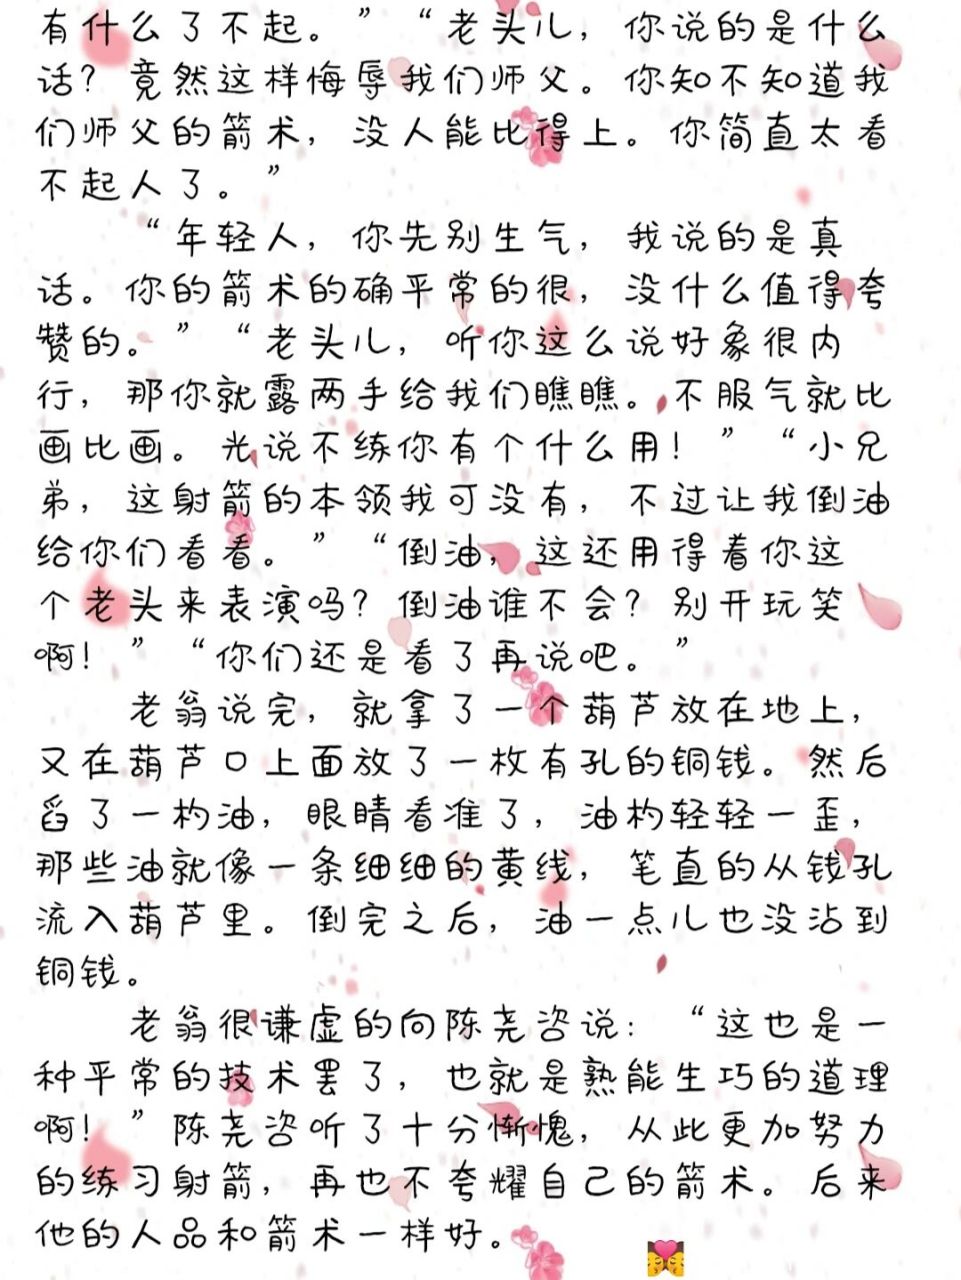 有什么了不起。”“老头儿，你说的是什么
话？竟然这样侮辱我们师父。你知不知道我
们师父的箭术，没人能比得上。你简直太看
不起人了。”
“年轻人，你先别生气，我说的是真
话。你的箭术的确平常的很，没什么值得夸
赞的。”“老头儿，听你这么说好象很内
行，那你就露两手给我们瞧瞧。不服气就比
画比画。光说不练你有个什么用！”“小兄
弟，这射箭的本领我可没有，不过让我倒油
给你们看看。”“倒油，这还用得着你这
个老头来表演吗？倒油谁不会？别开玩笑
啊！”“你们还是看了再说吧。”
老翁说完，就拿了一个葫芦放在地上，
又在葫芦口上面放了一枚有孔的铜钱。然后
舀了一杓油，眼睛看准了，油杓轻轻一歪，
那些油就像一条细细的黄线，笔直的从钱孔
流入葫芦里。倒完之后，油一点儿也没沾到
铜钱。
老翁很谦虚的向陈尧咨说：“这也是一
种平常的技术罢了，也就是熟能生巧的道理
啊！”陈尧咨听了十分惭愧，从此更加努力
的练习射箭，再也不夸耀自己的箭术。后来
他的人品和箭术一样好。